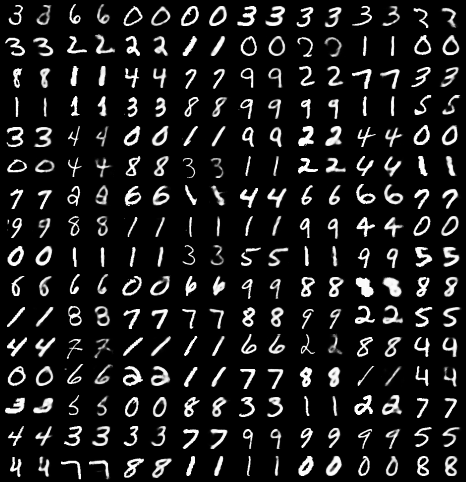 3 3 6 6 0 0 0 0 3 3 3 3 3 3
3 3 2 2 2 2 1 1 0 0 2 2 1 1 0 0
8 8 1 1 4 4 7 7 9 9 2 2 7 7 3 3
1 1 1 1 3 3 8 8 9 9 9 9 1 1 5 5
3 3 4 4 0 0 1 1 9 9 2 2 4 4 0 0
0 0 4 4 8 8 3 3 1 1 2 2 4 4 1 1
7 7 2 6 6 1 1 4 4 6 6 6 6 7 7
9 9 8 8 1 1 1 1 1 1 9 9 4 4 0 0
0 0 1 1 1 1 3 3 5 5 1 1 9 9 5 5
6 6 6 6 0 0 6 6 9 9 8 8 8 8 8 8
1 1 8 8 7 7 7 7 8 8 9 9 2 2 5 5
4 4 7 7 1 1 1 1 6 6 2 2 8 8 4 4
0 0 6 6 2 2 1 1 7 7 8 8 1 1 4 4
3 3 5 5 0 0 8 8 3 3 1 1 2 2 7 7
4 4 3 3 3 3 7 7 9 9 9 9 9 9 5 5
4 4 7 7 8 8 1 1 1 1 0 0 0 0 8 8